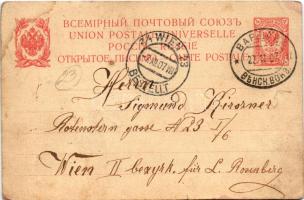 ВСЕМІРНЫЙ ПОЧТОВЫЙ СОЮЗЪ
UNION POSTALE UNIVERSELLE
РОССІЯ RUSSIE
ОТКРЫТОЕ ПИСЬМО CARTE POSTALE
WIEN
BESTELLT
23
Herrn
Sigmund
Rotenstern gasse No 23 I/6
Wien II bezirk für L. Rosenberg